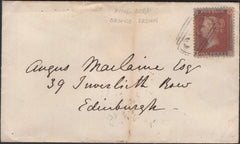 Angus Maclaine Esq
39 Inverleith Row
Edinburgh.